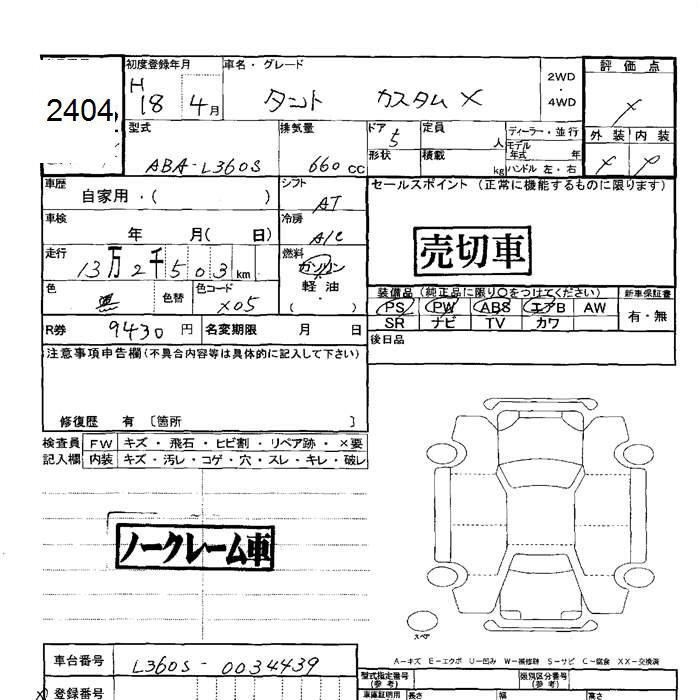 初度登録年月 車名・グレード 2WD・4WD 評価点
2404
H18 4月 タント カスタムX X
外装 内装
型式 排気量 ドア 定員 人 ディーラー・並行
ABA-L360S 660cc 5 形状 積載 kg モデル年式 年 ハンドル 左・右
X X
車歴 自家用・( ) シフト AT セールスポイント (正常に機能するものに限ります)
車検 年 月( 日) 冷房 A/C
売切車
走行 13万2千503km 燃料 ガソリン 軽油 ( )
色 黒 色替 色コード X05
装備品 (純正品に限り○をつけてください) 新車保証書
PS PW ABS エアB AW 有・無
SR ナビ TV カワ
R券 9430円 名変期限 月 日
後日品
注意事項申告欄(不具合内容等は具体的に記入して下さい)
修復歴 有 〔箇所 〕
検査員 FW キズ・飛石・ヒビ割・リペア跡・×要
記入欄 内装 キズ・汚レ・コゲ・穴・スレ・キレ・破レ
ノークレーム車
スペア
A-キズ E-エクボ U-凹み W-補修跡 S-サビ C-腐食 XX-交換済
車台番号 L360S-0034439
型式指定番号 (参考) 類別区分番号 (参考)
登録番号
車庫証明用 長さ 幅 高さ